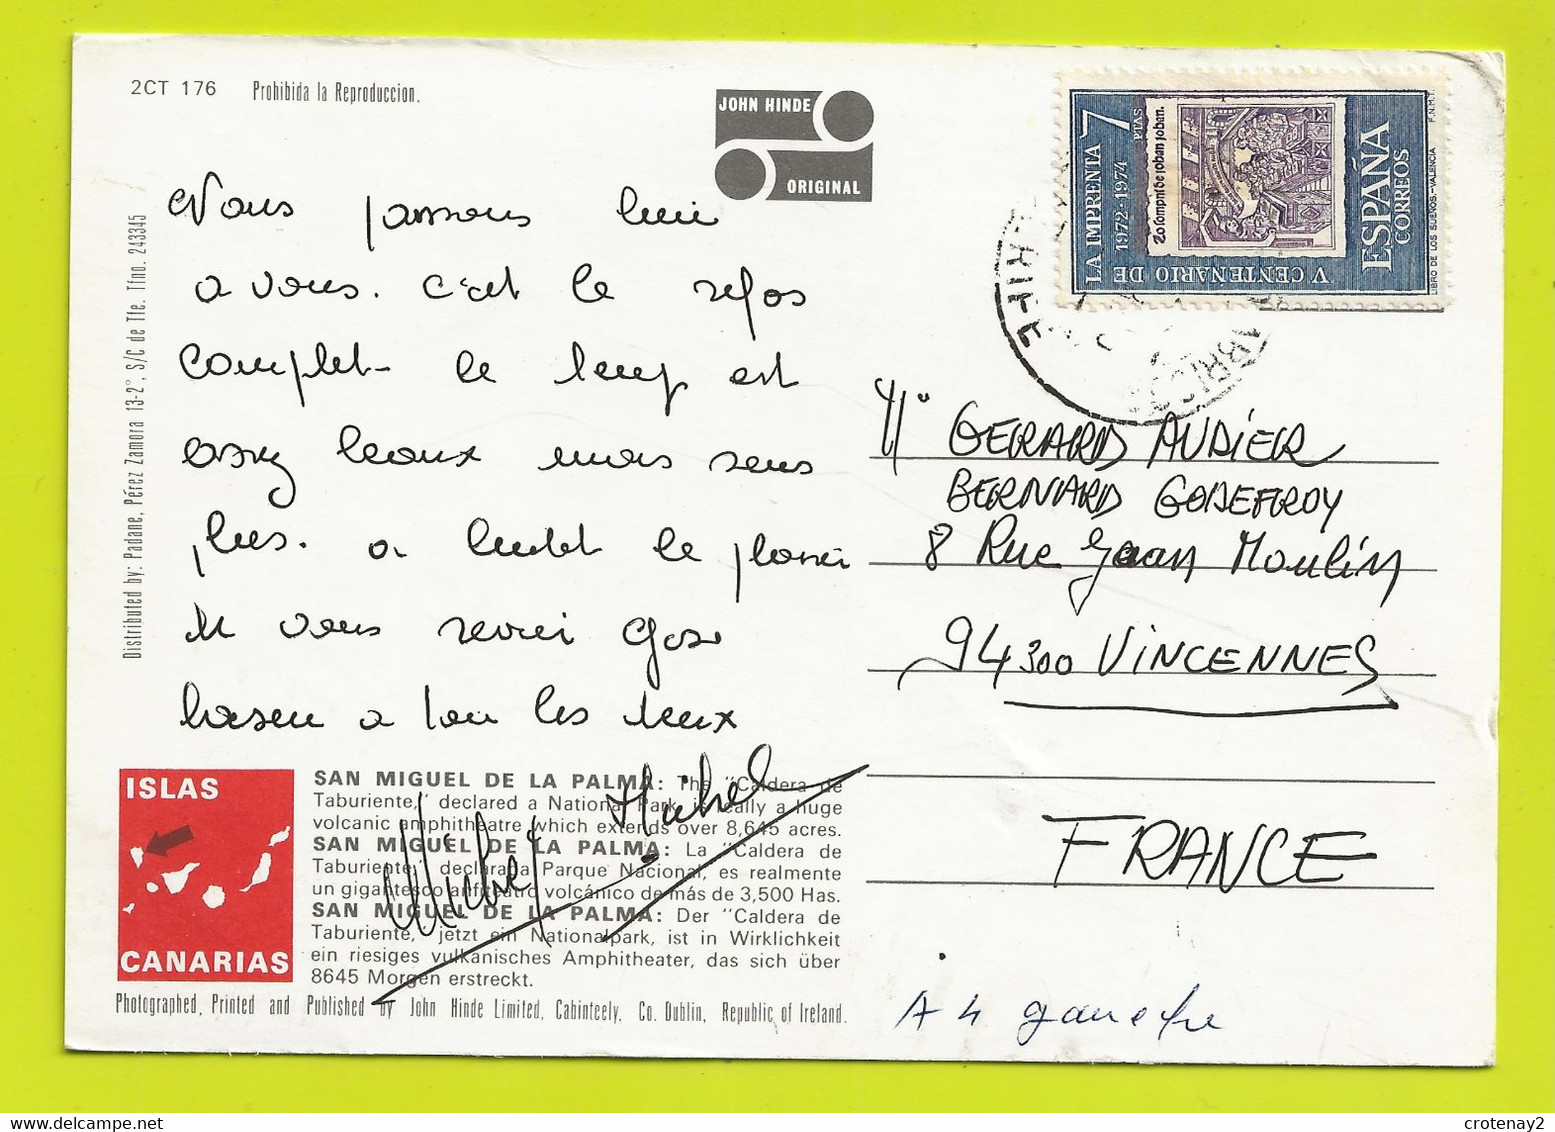 2CT 176 Prohibida la Reproduccion.
JOHN HINDE
ORIGINAL
V CENTENARIO DE LA IMPRENTA 7 PTAS
1972-1974
ESPAÑA
CORREOS
LIBRO DE LOS SUEÑOS.-VALENCIA F.N.M.T.
Distributed by: Padane, Pérez Zamora 13-2°, S/C de Tfe. Tfno. 243345
Nous passons
a vous. c'est le repos
complet le temp est
assez beaux mais sens
plus. a le plaisir
de vous revoir gros
a tou les deux
Michel
Michel
Mr GERARD AUDIER
BERNARD GODEFROY
8 Rue Jean Moulin
94300 VINCENNES
FRANCE
A 4 gauche
ISLAS
CANARIAS
SAN MIGUEL DE LA PALMA: The "Caldera de
Taburiente," declared a National Park, is really a huge
volcanic amphitheatre which extends over 8,645 acres.
SAN MIGUEL DE LA PALMA: La "Caldera de
Taburiente," declarada Parque Nacional, es realmente
un gigantesco anfiteatro volcánico de más de 3,500 Has.
SAN MIGUEL DE LA PALMA: Der "Caldera de
Taburiente," jetzt ein Nationalpark, ist in Wirklichkeit
ein riesiges vulkanisches Amphitheater, das sich über
8645 Morgen erstreckt.
Photographed, Printed and Published by John Hinde Limited, Cabinteely, Co. Dublin, Republic of Ireland.
crotenay2